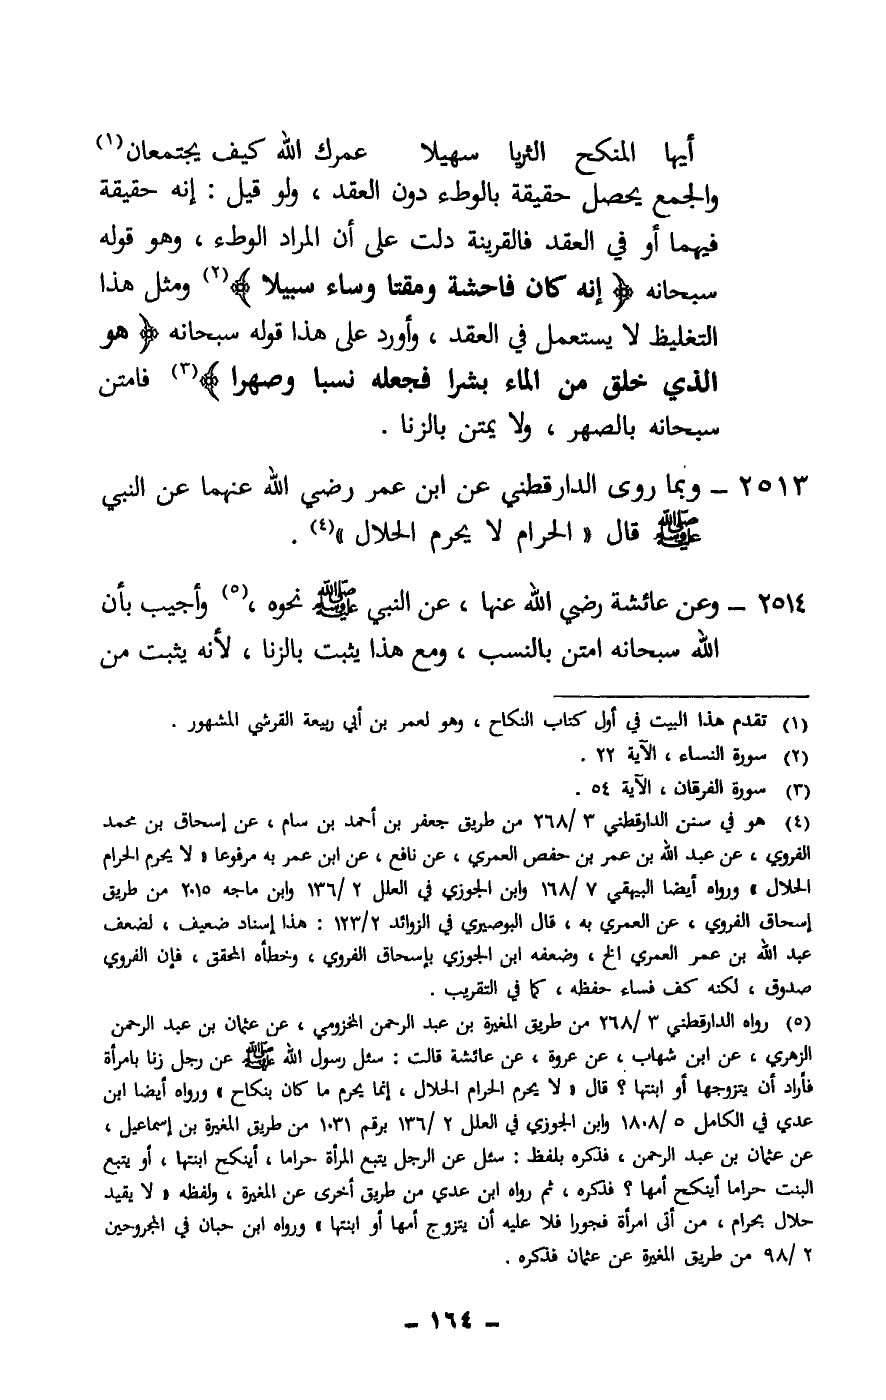 أيها المنكح الثريا سهيلا عمرك الله كيف يجتمعان(١)
والجمع يحصل حقيقة بالوطء دون العقد ، ولو قيل : إنه حقيقة
فيهما أو في العقد فالقرينة دلت على أن المراد الوطء ، وهو قوله
سبحانه ﴿ إنه كان فاحشة ومقتا وساء سبيلا ﴾(٢) ومثل هذا
التغليظ لا يستعمل في العقد ، وأورد على هذا قوله سبحانه ﴿ هو
الذي خلق من الماء بشرا فجعله نسبا وصهرا ﴾(٣) فامتن
سبحانه بالصهر ، ولا يمتن بالزنا .
٢٥١٣ – وبما روى الدارقطني عن ابن عمر رضي الله عنهما عن النبي
ﷺ قال « الحرام لا يحرم الحلال »(٤) .
٢٥١٤ – وعن عائشة رضي الله عنها ، عن النبي ﷺ نحوه ،(٥) وأجيب بأن
الله سبحانه امتن بالنسب ، ومع هذا يثبت بالزنا ، لأنه يثبت من
(١) تقدم هذا البيت في أول كتاب النكاح ، وهو لعمر بن أبي ربيعة القرشي المشهور .
(٢) سورة النساء ، الآية ٢٢ .
(٣) سورة الفرقان ، الآية ٥٤ .
(٤) هو في سنن الدارقطني ٣ /٢٦٨ من طريق جعفر بن أحمد بن سام ، عن إسحاق بن محمد
الفروي ، عن عبد الله بن عمر بن حفص العمري ، عن نافع ، عن ابن عمر به مرفوعا « لا يحرم الحرام
الحلال » ورواه أيضا البيهقي ٧ /١٦٨ وابن الجوزي في العلل ٢ /١٣٦ وابن ماجه ٢٠١٥ من طريق
إسحاق الفروي ، عن العمري به ، قال البوصيري في الزوائد ١٢٣/٢ : هذا إسناد ضعيف ، لضعف
عبد الله بن عمر العمري الخ ، وضعفه ابن الجوزي بإسحاق الفروي ، وخطأه المحقق ، فإن الفروي
صدوق ، لكنه كف فساء حفظه ، كما في التقريب .
(٥) رواه الدارقطني ٣ /٢٦٨ من طريق المغيرة بن عبد الرحمن المخزومي ، عن عثمان بن عبد الرحمن
الزهري ، عن ابن شهاب ، عن عروة ، عن عائشة قالت : سئل رسول الله ﷺ عن رجل زنا بامرأة
فأراد أن يتزوجها أو ابنتها ؟ قال « لا يحرم الحرام الحلال ، إنما يحرم ما كان بنكاح » ورواه أيضا ابن
عدي في الكامل ٥ /١٨٠٨ وابن الجوزي في العلل ٢ /١٣٦ برقم ١٠٣١ من طريق المغيرة بن إسماعيل ،
عن عثمان بن عبد الرحمن ، فذكره بلفظ : سئل عن الرجل يتبع المرأة حراما ، أينكح ابنتها ، أو يتبع
البنت حراما أينكح أمها ؟ فذكره ، ثم رواه ابن عدي من طريق أخرى عن المغيرة ، ولفظه « لا يقيد
حلال بحرام ، من أتى امرأة فجورا فلا عليه أن يتزوج أمها أو ابنتها » ورواه ابن حبان في المجروحين
٢ /٩٨ من طريق المغيرة عن عثمان فذكره .
– ١٦٤ –